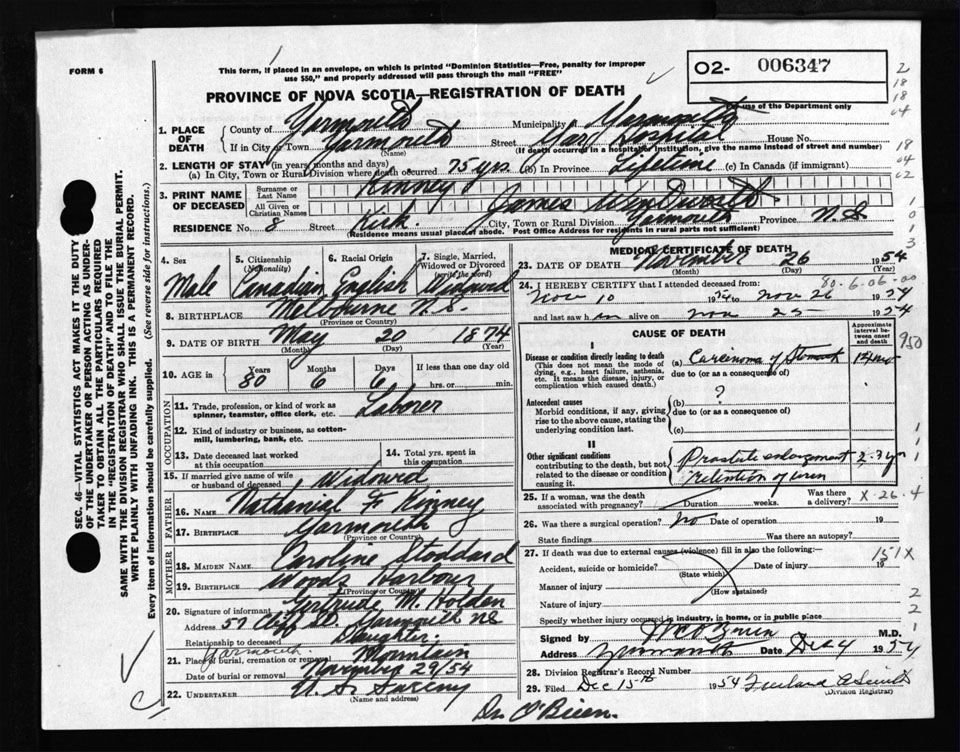 FORM 6
This form, if placed in an envelope, on which is printed "Dominion Statistics—Free, penalty for improper
use $50," and properly addressed will pass through the mail "FREE"
O2- 006347
PROVINCE OF NOVA SCOTIA—REGISTRATION OF DEATH
For use of the Department only
1. PLACE OF DEATH
County of Yarmouth Municipality of Yarmouth
If in City or Town Yarmouth (Name) Street Hospital House No.
(If death occurred in a hospital or institution, give the name instead of street and number)
2. LENGTH OF STAY (in years, months and days)
(a) In City, Town or Rural Division where death occurred 75 yrs. (b) In Province Lifetime (c) In Canada (if immigrant)
3. PRINT NAME OF DECEASED
Surname or Last Name Kinney
All Given or Christian Names James Wendworth
RESIDENCE No. 8 Street Kirk City, Town or Rural Division Yarmouth Province N.S
(Residence means usual place of abode. Post Office Address for residents in rural parts not sufficient)
4. Sex Male
5. Citizenship (Nationality) Canadian
6. Racial Origin English
7. Single, Married, Widowed or Divorced (write the word) Widowed
8. BIRTHPLACE Melbourne N.S. (Province or Country)
9. DATE OF BIRTH May (Month) 20 (Day) 1874 (Year)
10. AGE in Years 80 Months 6 Days 6 If less than one day hrs. or min.
OCCUPATION
11. Trade, profession, or kind of work as spinner, teamster, office clerk, etc. Laborer
12. Kind of industry or business, as cotton-mill, lumbering, bank, etc.
13. Date deceased last worked at this occupation
14. Total yrs. spent in this occupation
15. If married give name of wife or husband of deceased Widowed
FATHER
16. NAME Nathanial F Kinney
17. BIRTHPLACE Yarmouth (Province or Country)
MOTHER
18. MAIDEN NAME Caroline Stoddard
19. BIRTHPLACE Woods Harbour (Province or Country)
20. Signature of informant Gertrude M. Holden
Address 57 Cliff St. Yarmouth NS
Relationship to deceased Daughter.
21. Place of burial, cremation or removal Yarmouth Mountain
Date of burial or removal November 29/54
22. UNDERTAKER
(Name and address)
MEDICAL CERTIFICATE OF DEATH
23. DATE OF DEATH November (Month) 26 (Day) 1954 (Year)
80-6-06-00
24. I HEREBY CERTIFY that I attended deceased from:
Nov 10 1954 to Nov 26 1954
and last saw him alive on Nov 25 1954
CAUSE OF DEATH
Approximate interval between onset and death
950
I
Disease or condition directly leading to death
(This does not mean the mode of dying, e.g., heart failure, asthenia, etc. It means the disease, injury, or complication which caused death.)
(a) Carcinoma of Stomach
due to (or as a consequence of)
Antecedent causes
Morbid conditions, if any, giving rise to the above cause, stating the underlying condition last.
(b) ?
due to (or as a consequence of)
(c)
II
Other significant conditions
contributing to the death, but not related to the disease or condition causing it.
Prostate enlargement 2-3 yrs
retention of urine
25. If a woman, was the death associated with pregnancy? Duration weeks. Was there a delivery?
X-26-4
26. Was there a surgical operation? No Date of operation 19
State findings Was there an autopsy?
27. If death was due to external causes (violence) fill in also the following:—
151X
Accident, suicide or homicide? (State which) Date of injury 19
Manner of injury (How sustained)
Nature of injury
Specify whether injury occurred in industry, in home, or in public place
Signed by O'Brien M.D.
Address Yarmouth Date Dec 1954
28. Division Registrar's Record Number
29. Filed Dec 15th 1954 Smith
(Division Registrar)
Dr. O'Brien.
SEC. 46—VITAL STATISTICS ACT MAKES IT THE DUTY
OF THE UNDERTAKER OR PERSON ACTING AS UNDER-
TAKER TO OBTAIN ALL THE PARTICULARS REQUIRED
IN THE "REGISTRATION OF DEATH" AND TO FILE THE
SAME WITH THE DIVISION REGISTRAR WHO SHALL ISSUE THE BURIAL PERMIT.
WRITE PLAINLY WITH UNFADING INK. THIS IS A PERMANENT RECORD.
Every item of information should be carefully supplied. (See reverse side for instructions.)